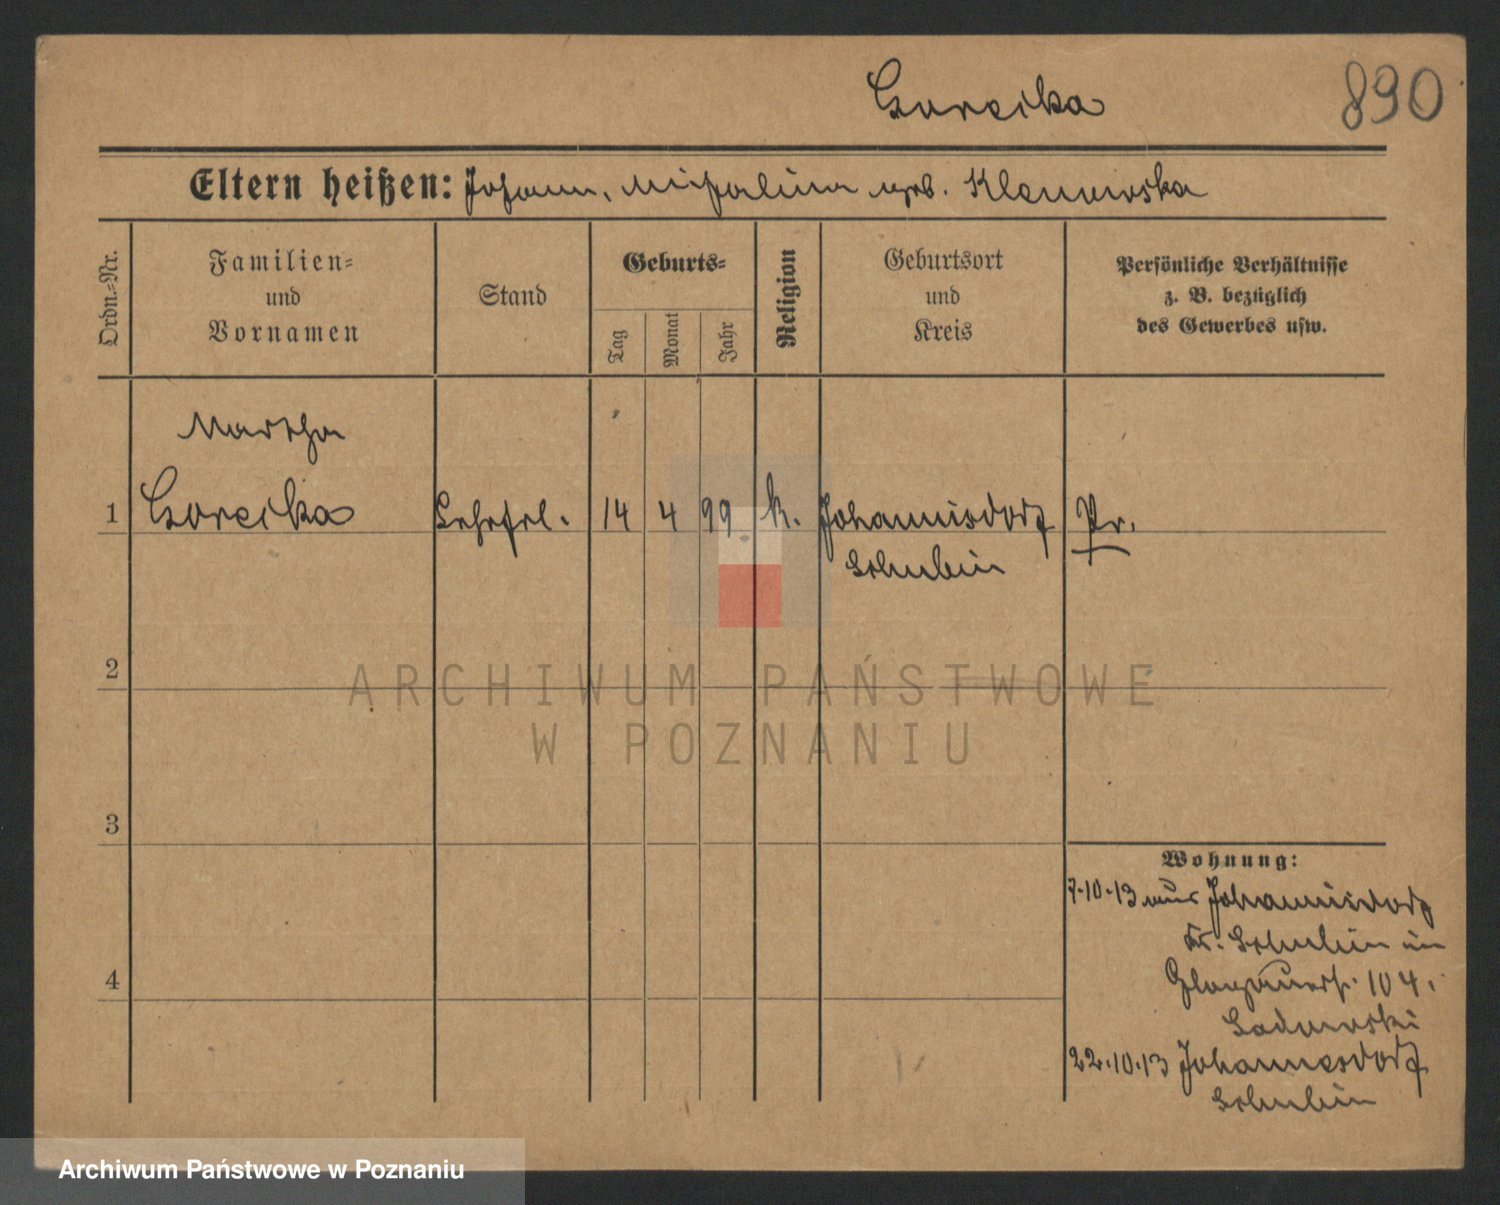 Gorecka
890
Eltern heißen: Johann, Michalina geb. Klenowska
Ordn.-Nr.
Familien-
und
Vornamen
Stand
Geburts-
Tag
Monat
Jahr
Religion
Geburtsort
und
Kreis
Persönliche Verhältnisse
z. B. bezüglich
des Gewerbes usw.
Martha
1 Gorecka Lehrfrl. 14 4 99 k. Johannisdorf Pr.
Schubin
2
3
4
Wohnung:
7.10.13 aus Johannisdorf
Kr. Schubin in
Glogauerstr. 104.
Sadowski
22.10.13 Johannesdorf
Schubin
ARCHIWUM PAŃSTWOWE
W POZNANIU
Archiwum Państwowe w Poznaniu